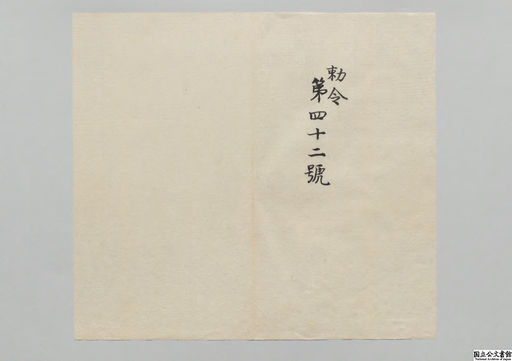 勅令
第四十二號
国立公文書館
National Archives of Japan